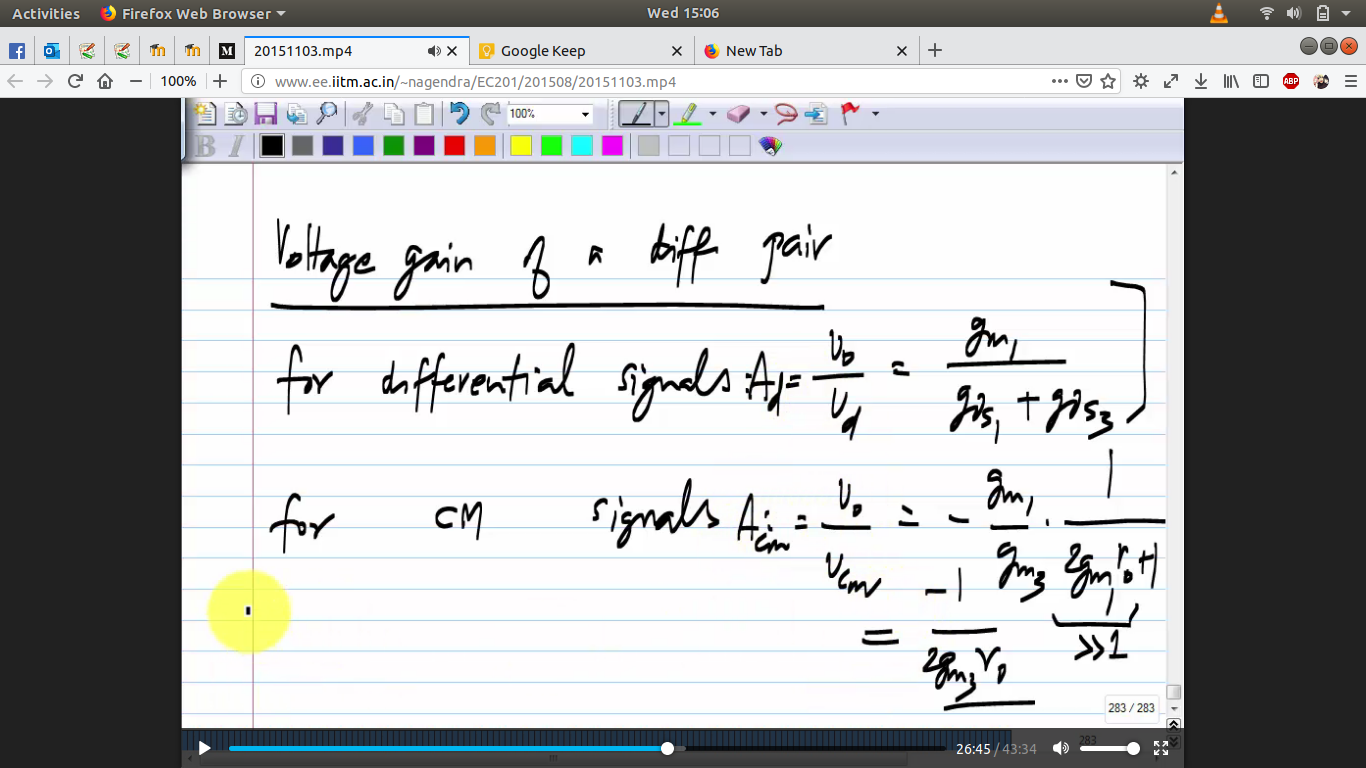 Activities Firefox Web Browser Wed 15:06
20151103.mp4 Google Keep New Tab
100% www.ee.iitm.ac.in/~nagendra/EC201/201508/20151103.mp4 ABP
100%
B I
Voltage gain of a diff pair
for differential signals: Ad = vo/vd = gm1/(gds1 + gds3)
for CM signals Acm = vo/vcm = - gm1/gm3 · 1/(2gm1ro+1)
>>1
= -1/(2gm3ro)
283 / 283
283
26:45 / 43:34